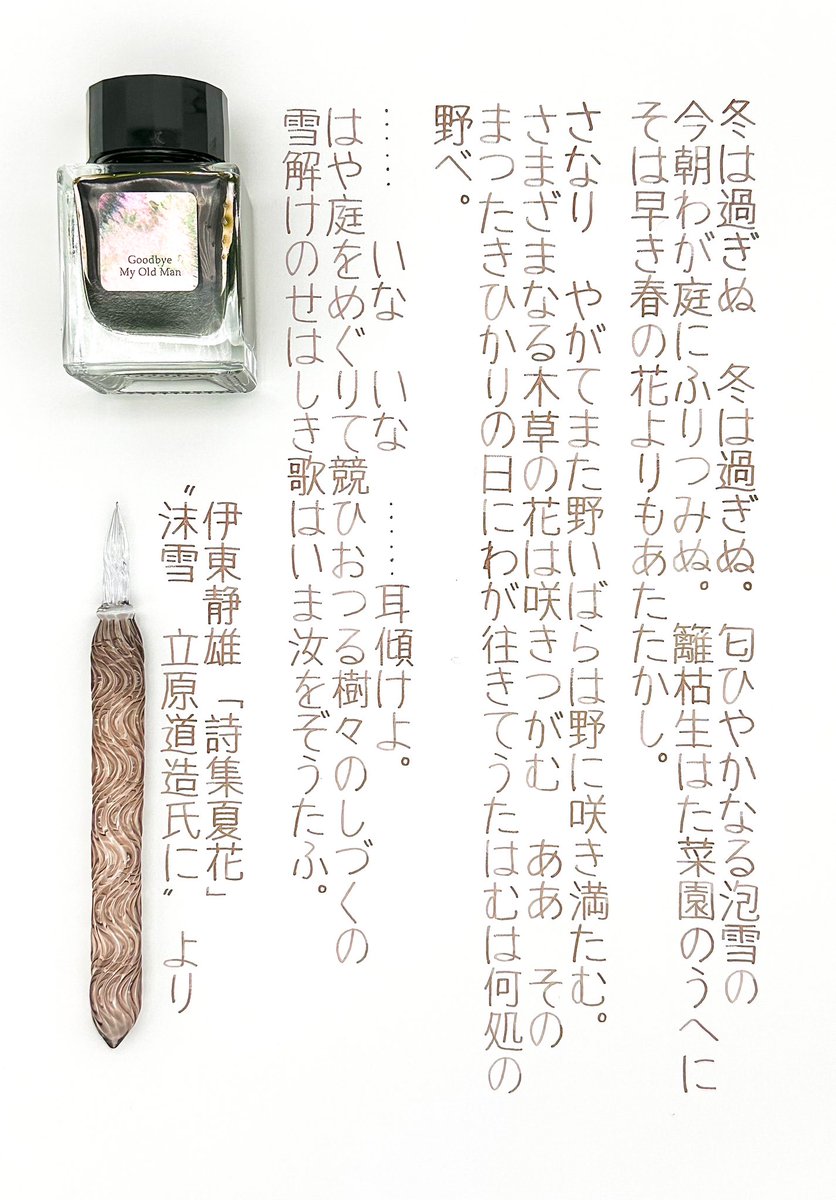 冬は過ぎぬ　冬は過ぎぬ。匂ひやかなる泡雪の
今朝わが庭にふりつみぬ。籬枯生はた菜園のうへに
そは早き春の花よりもあたたかし。
さなり　やがてまた野いばらは野に咲き満たむ。
さまざまなる木草の花は咲きつがむ　ああ　その
まつたきひかりの日にわが往きてうたはむは何処の
野べ。
……　いな　いな　……耳傾けよ。
はや庭をめぐりて競ひおつる樹々のしづくの
雪解けのせはしき歌はいま汝をぞうたふ。
伊東静雄「詩集夏花」
〝沫雪　立原道造氏に〟より
Goodbye
My Old Man